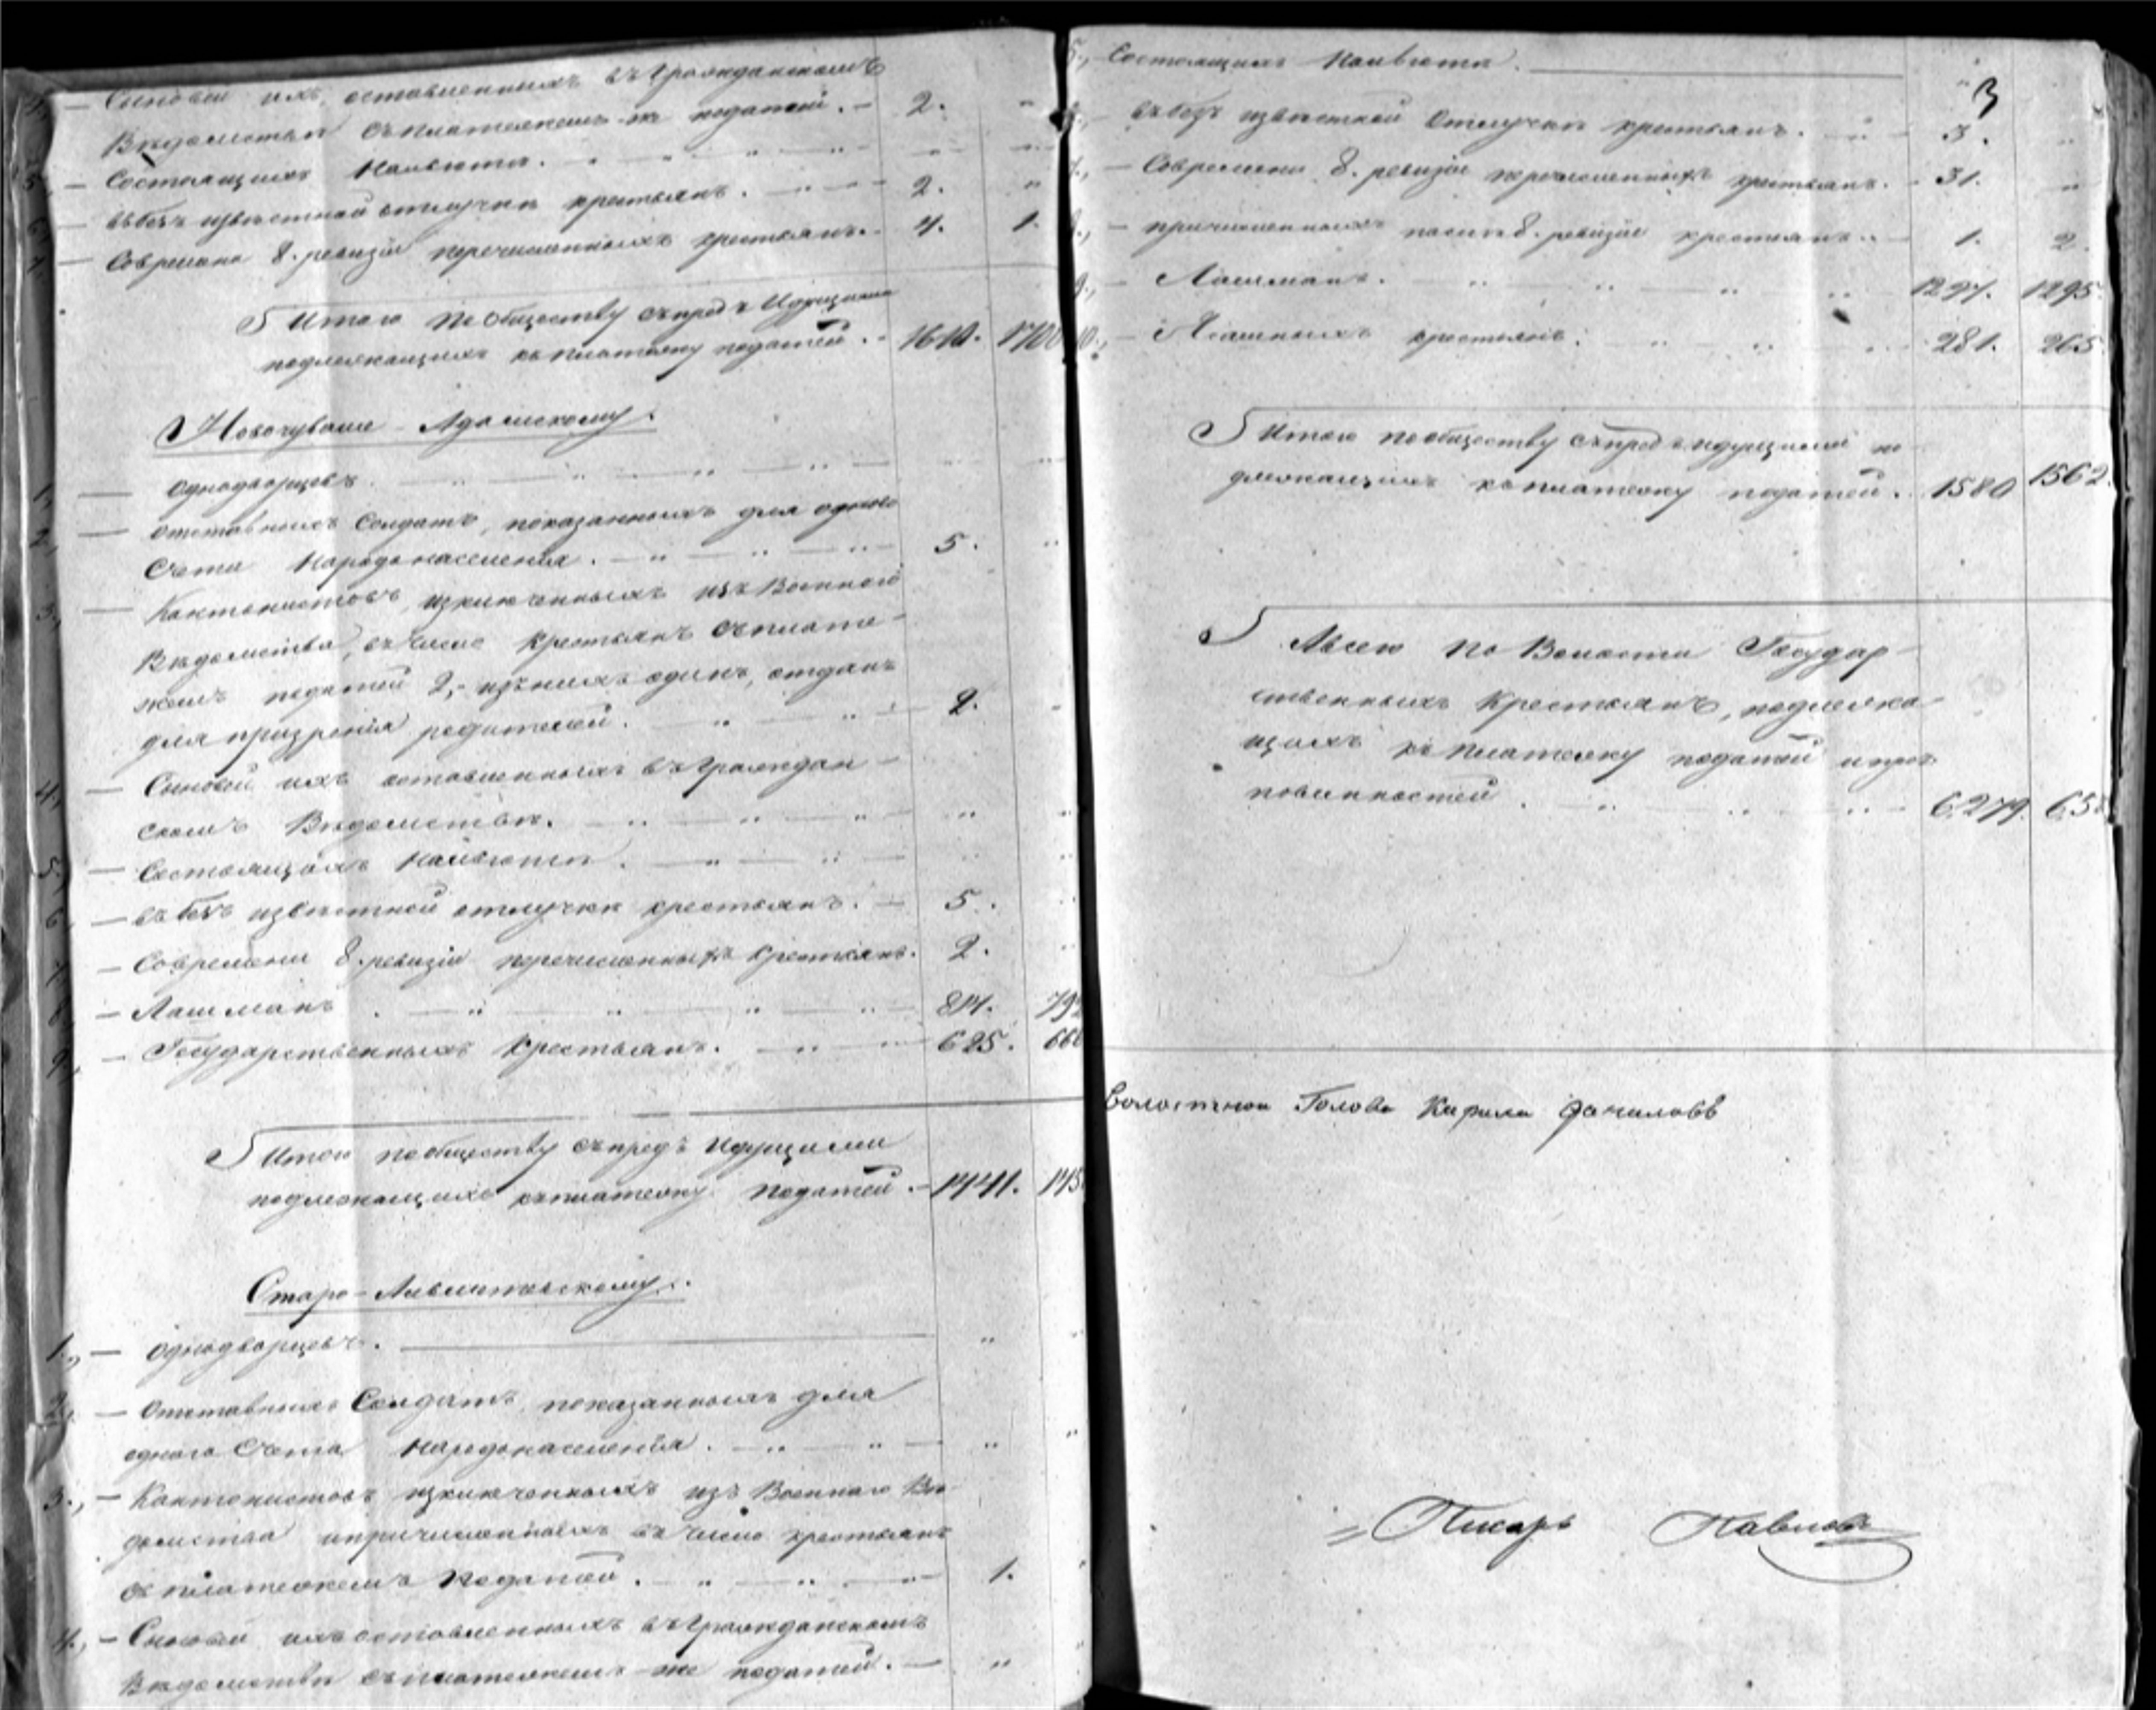 4., — Сыновей ихъ, оставленныхъ въ Гражданскомъ
Вѣдомствѣ съ платежемъ-же податей. — 2. "
5., — Состоящихъ на льготѣ. " "
6., — въ безъ извѣстной отлучкѣ крестьянъ. — 2. "
7., — Со времени 8. ревизіи перечисленныхъ крестьянъ. 4. 1.
Итого по Обществу съ предъ Идущими
подлежащихъ къ платежу податей. — 1610. 170
Новочуваш-Адамскому.
1., — Однодворцевъ.
2., — Отставныхъ Солдатъ, показанныхъ для одного
Счета Народонаселенія. — 5. "
3., — Кантонистовъ, изключенныхъ изъ Военнаго
Вѣдомства, въ Число Крестьянъ съ плате-
жемъ податей 2, - изъ нихъ одинъ, отданъ
для призрѣнія родителей. — 2. -
4., — Сыновей ихъ оставленныхъ въ Граждан-
скомъ Вѣдомствѣ. — " "
5., — Состоящихъ на льготѣ. — " "
6 — въ безъ извѣстной отлучкѣ крестьянъ. — 5. "
7 — Со времени 8. ревизіи перечисленныхъ Крестьянъ. 2. "
8 — Лашманъ — 814. 79
9 — Государственныхъ Крестьянъ. — 625. 66
Итого по обществу съ предъ Идущими
подлежащихъ къ платежу Податей. — 1441. 145
Старо-
1., — Однодворцевъ. "
2., — Отставныхъ Солдатъ, показанныхъ для
одного Счета Народонаселенія. — " "
3., — Кантонистовъ изключенныхъ изъ Военнаго Вѣ-
домства и причисленныхъ въ Число крестьянъ
съ платежемъ Податей. — 1. "
4., — Сыновей ихъ оставленныхъ въ Гражданскомъ
Вѣдомствѣ съ платежемъ-же податей. — "
3
5., Состоящихъ на льготѣ. "
6., — въ безъ извѣстной Отлучкѣ крестьянъ. 3. "
7., — Со времени 8. ревизіи перечисленныхъ крестьянъ. 31. "
8., — причисленныхъ послѣ 8. ревизіи крестьянъ. 1. 2.
9., — Лашманъ. 1297. 1295.
10., — Ясашныхъ крестьянъ. 281. 265.
Итого по обществу съ предъ идущими по
длежащихъ къ платежу податей. 1580 1562.
А всего по Волости Государ-
ственныхъ Крестьянъ, подлежа-
щихъ къ Платежу податей и проч.
повинностей. 6279. 65
Волостной Голова Кирила Даниловъ
Писарь Павловъ